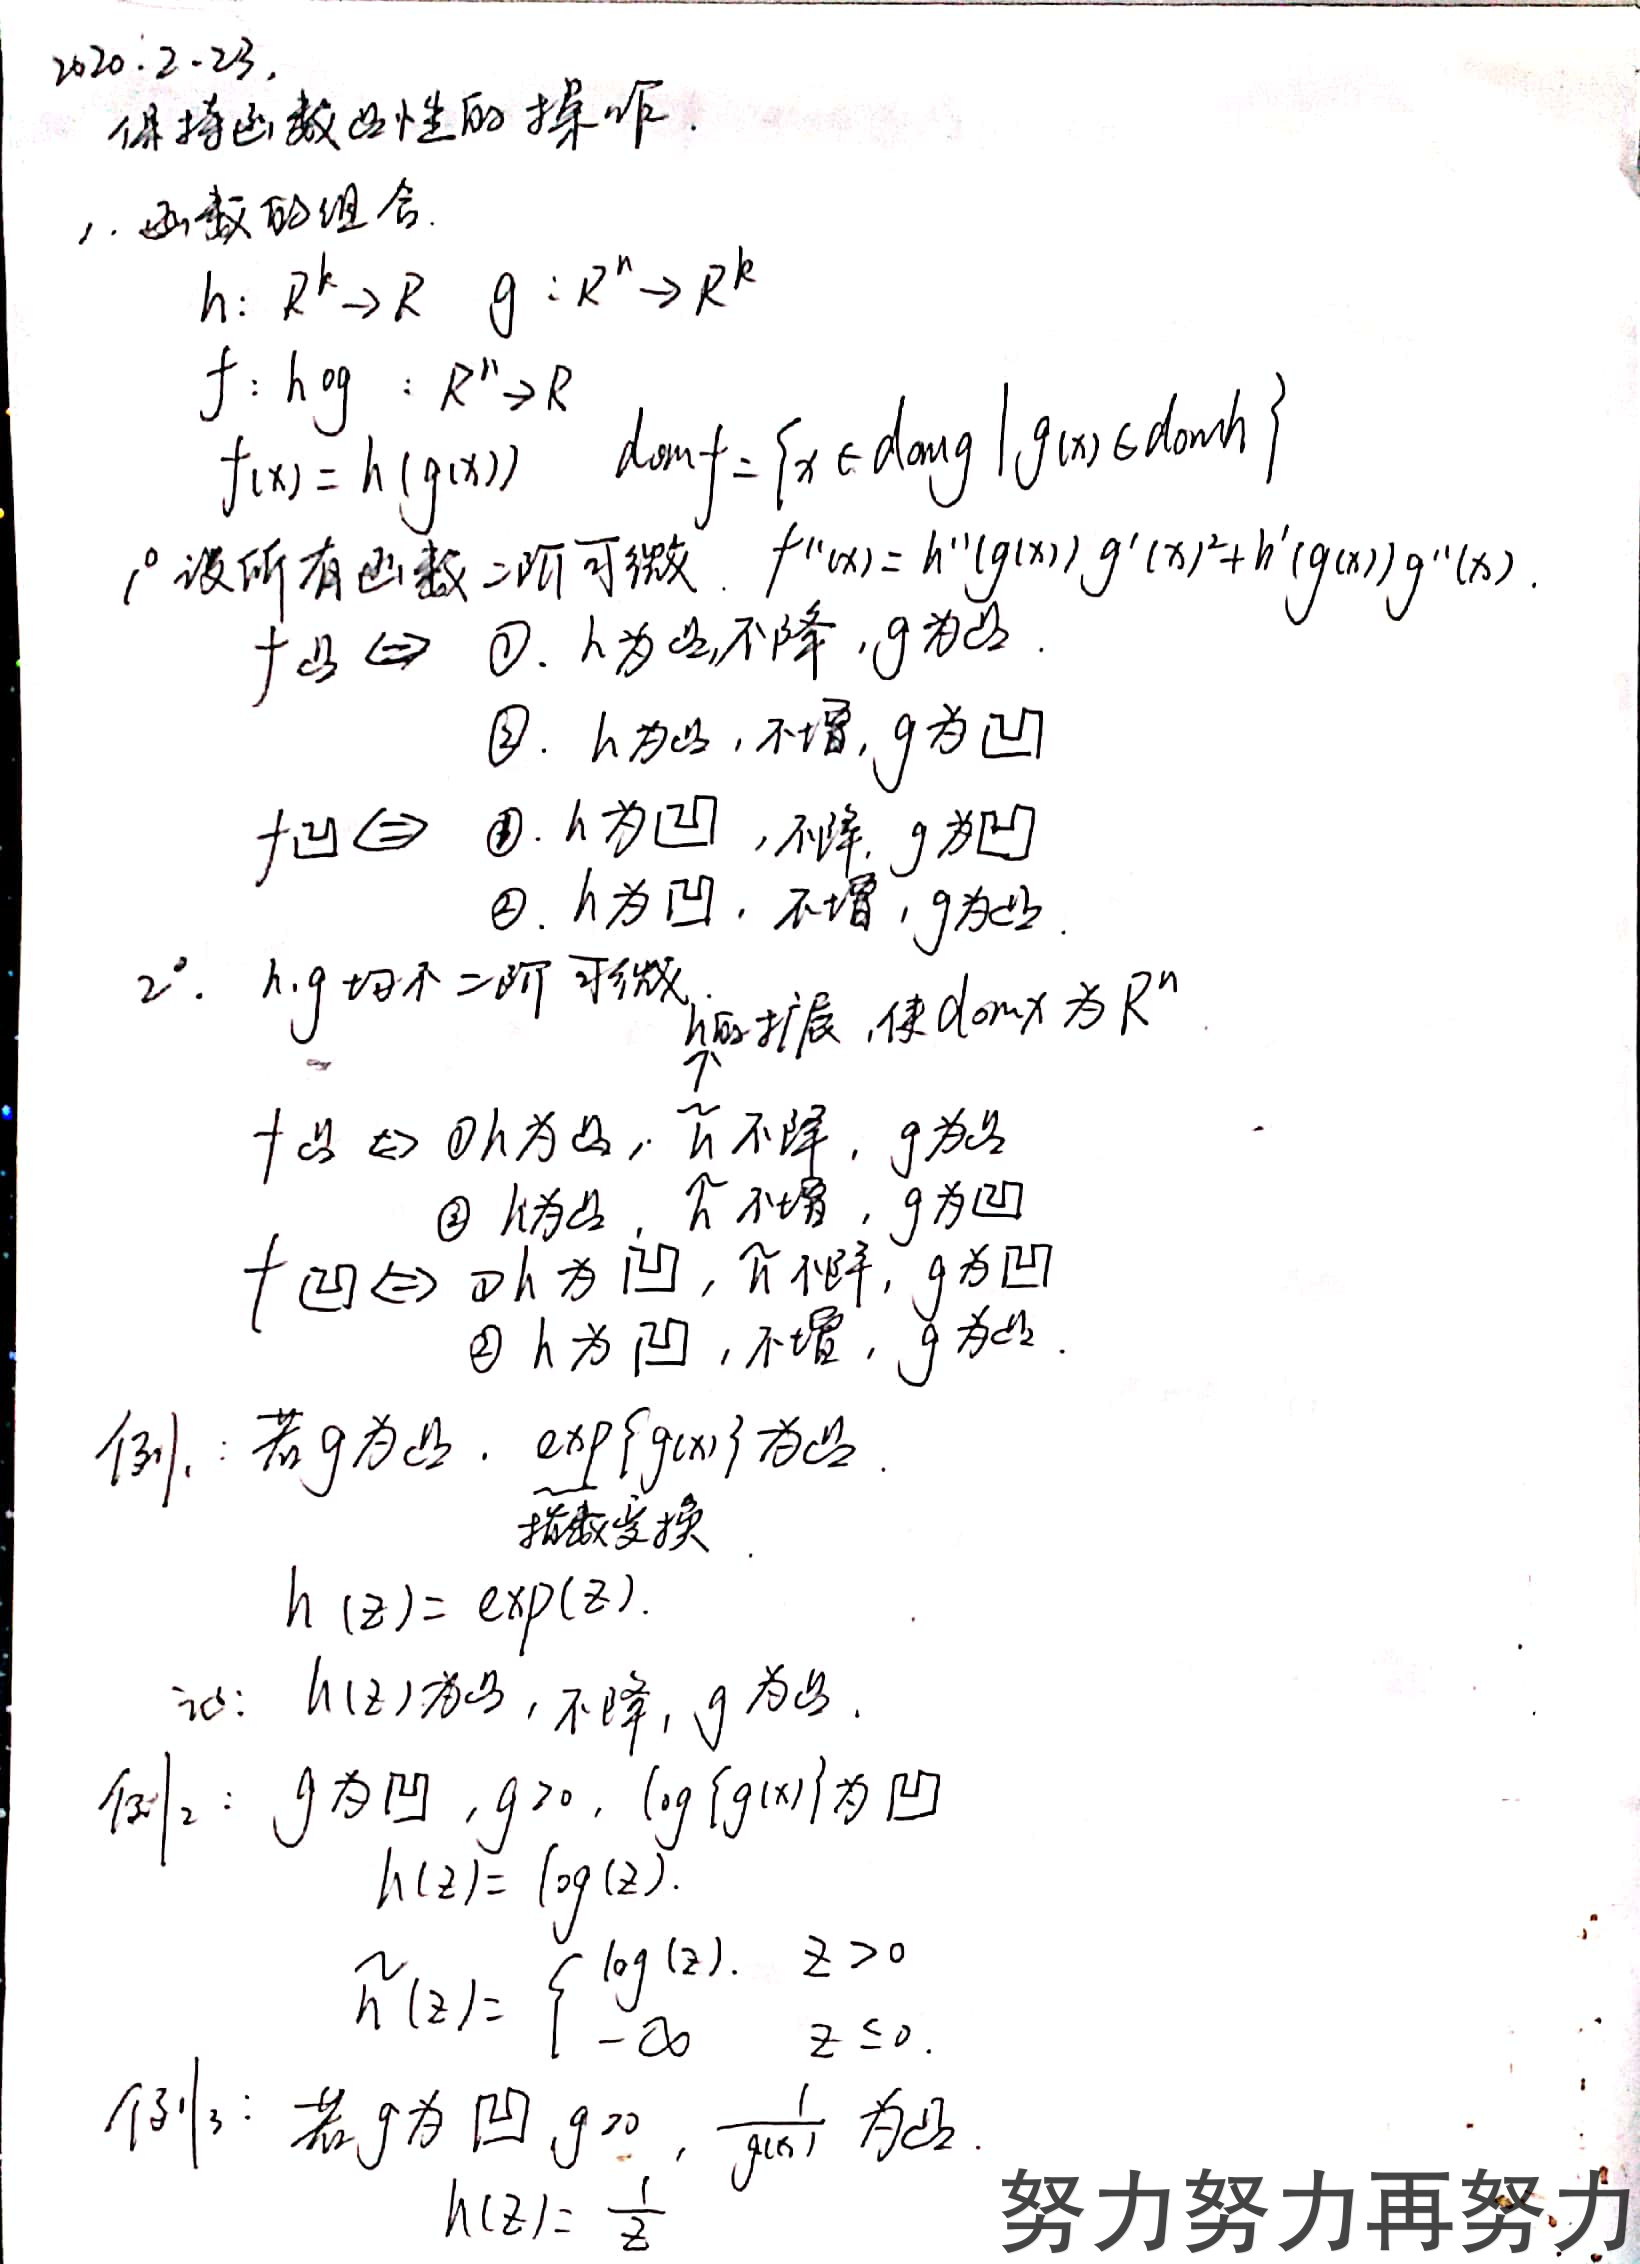 2020.2.23.
保持函数凸性的操作.
1. 函数的组合.
h: R^k→R g: R^n→R^k
f: h∘g : R^n→R
f(x)=h(g(x)) domf={x∈domg|g(x)∈domh}
1° 设所有函数二阶可微. f''(x)=h''(g(x))g'(x)²+h'(g(x))g''(x).
f凸⇔ ①. h为凸,不降,g为凸.
②. h为凸,不增,g为凹
f凹⇔ ①. h为凹,不降,g为凹
②. h为凹,不增,g为凸.
2°. h.g均不二阶可微.
h的扩展,使domx为R^n
↑
f凸⇔①h为凸, h̃不降, g为凸
②h为凸, h̃不增, g为凹
f凹⇔①h为凹, h̃不降, g为凹
②h为凹,不增, g为凸.
例1: 若g为凸. exp{g(x)}为凸.
指数变换.
h(z)=exp(z).
h(z)为凸,不降,g为凸.
例2: g为凹,g>0, log{g(x)}为凹
h(z)=log(z).
h̃(z)={log(z). z>0
-∞ z≤0.
例3: 若g为凹 g>0, 1/g(x) 为凸.
h(z)=1/z
努力努力再努力